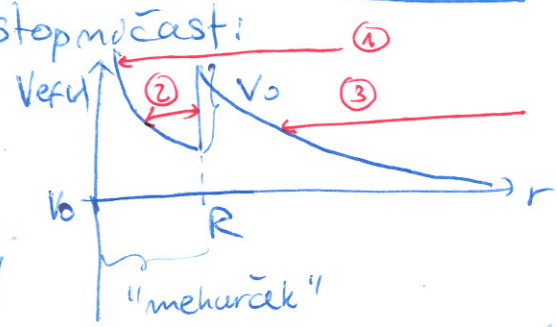 stopnu časti:
①
Veful
②
V₀
③
V₀
R
r
"mehurček"